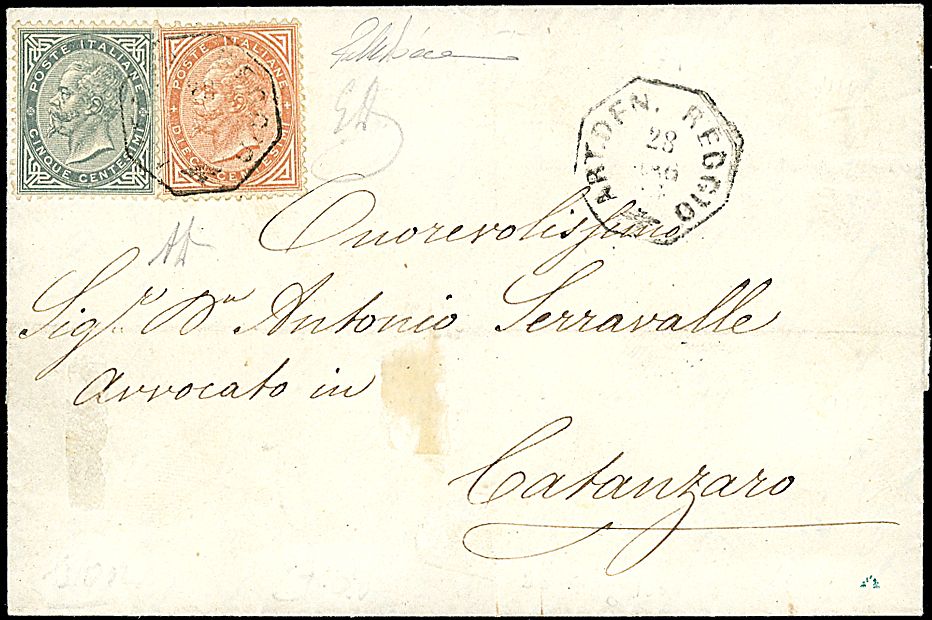 POSTE ITALIANE
CINQUE CENTESIMI
POSTE ITALIANE
DIECI CENTESIMI
REGGIO
28
Onorevolissimo
Sigr. Dn Antonio Serravalle
Avvocato in
Catanzaro